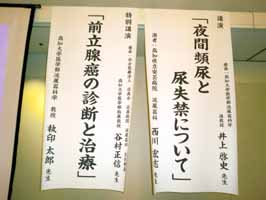 講演
「夜間頻尿と
尿失禁について」
座長・高知大学医学部泌尿器科学
准教授 井上啓史 先生
演者・高知県立安芸病院 泌尿器科
西川宏志 先生
特別講演
「前立腺癌の診断と治療」
谷村正信 先生
高知大学医学部泌尿器科学
教授 執印太郎 先生